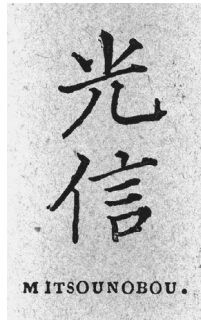 光
信
MITSOUNOBOU.